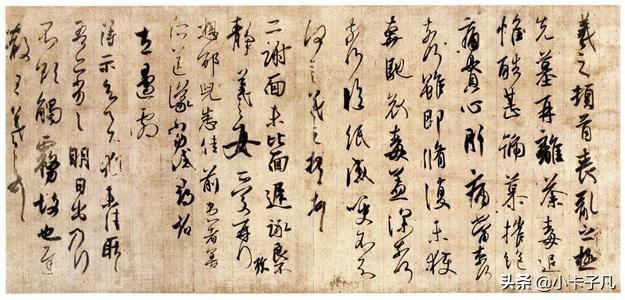 羲之頓首喪亂之極
先墓再離荼毒追
惟酷甚號慕摧絕
痛貫心肝痛當奈何
奈何雖即脩復未獲
奔馳哀毒益深奈何
奈何臨紙感哽不知
何言羲之頓首頓首
二謝面未比面遲詠良不
靜羲之女愛再拜
想邵兒悉佳前患者善
所送議當試尋省
左邊劇
得示知足下猶未佳耿耿
吾亦劣劣明日出乃行
不欲觸霧故也遲
散王羲之頓首
头条 @小卡子凡